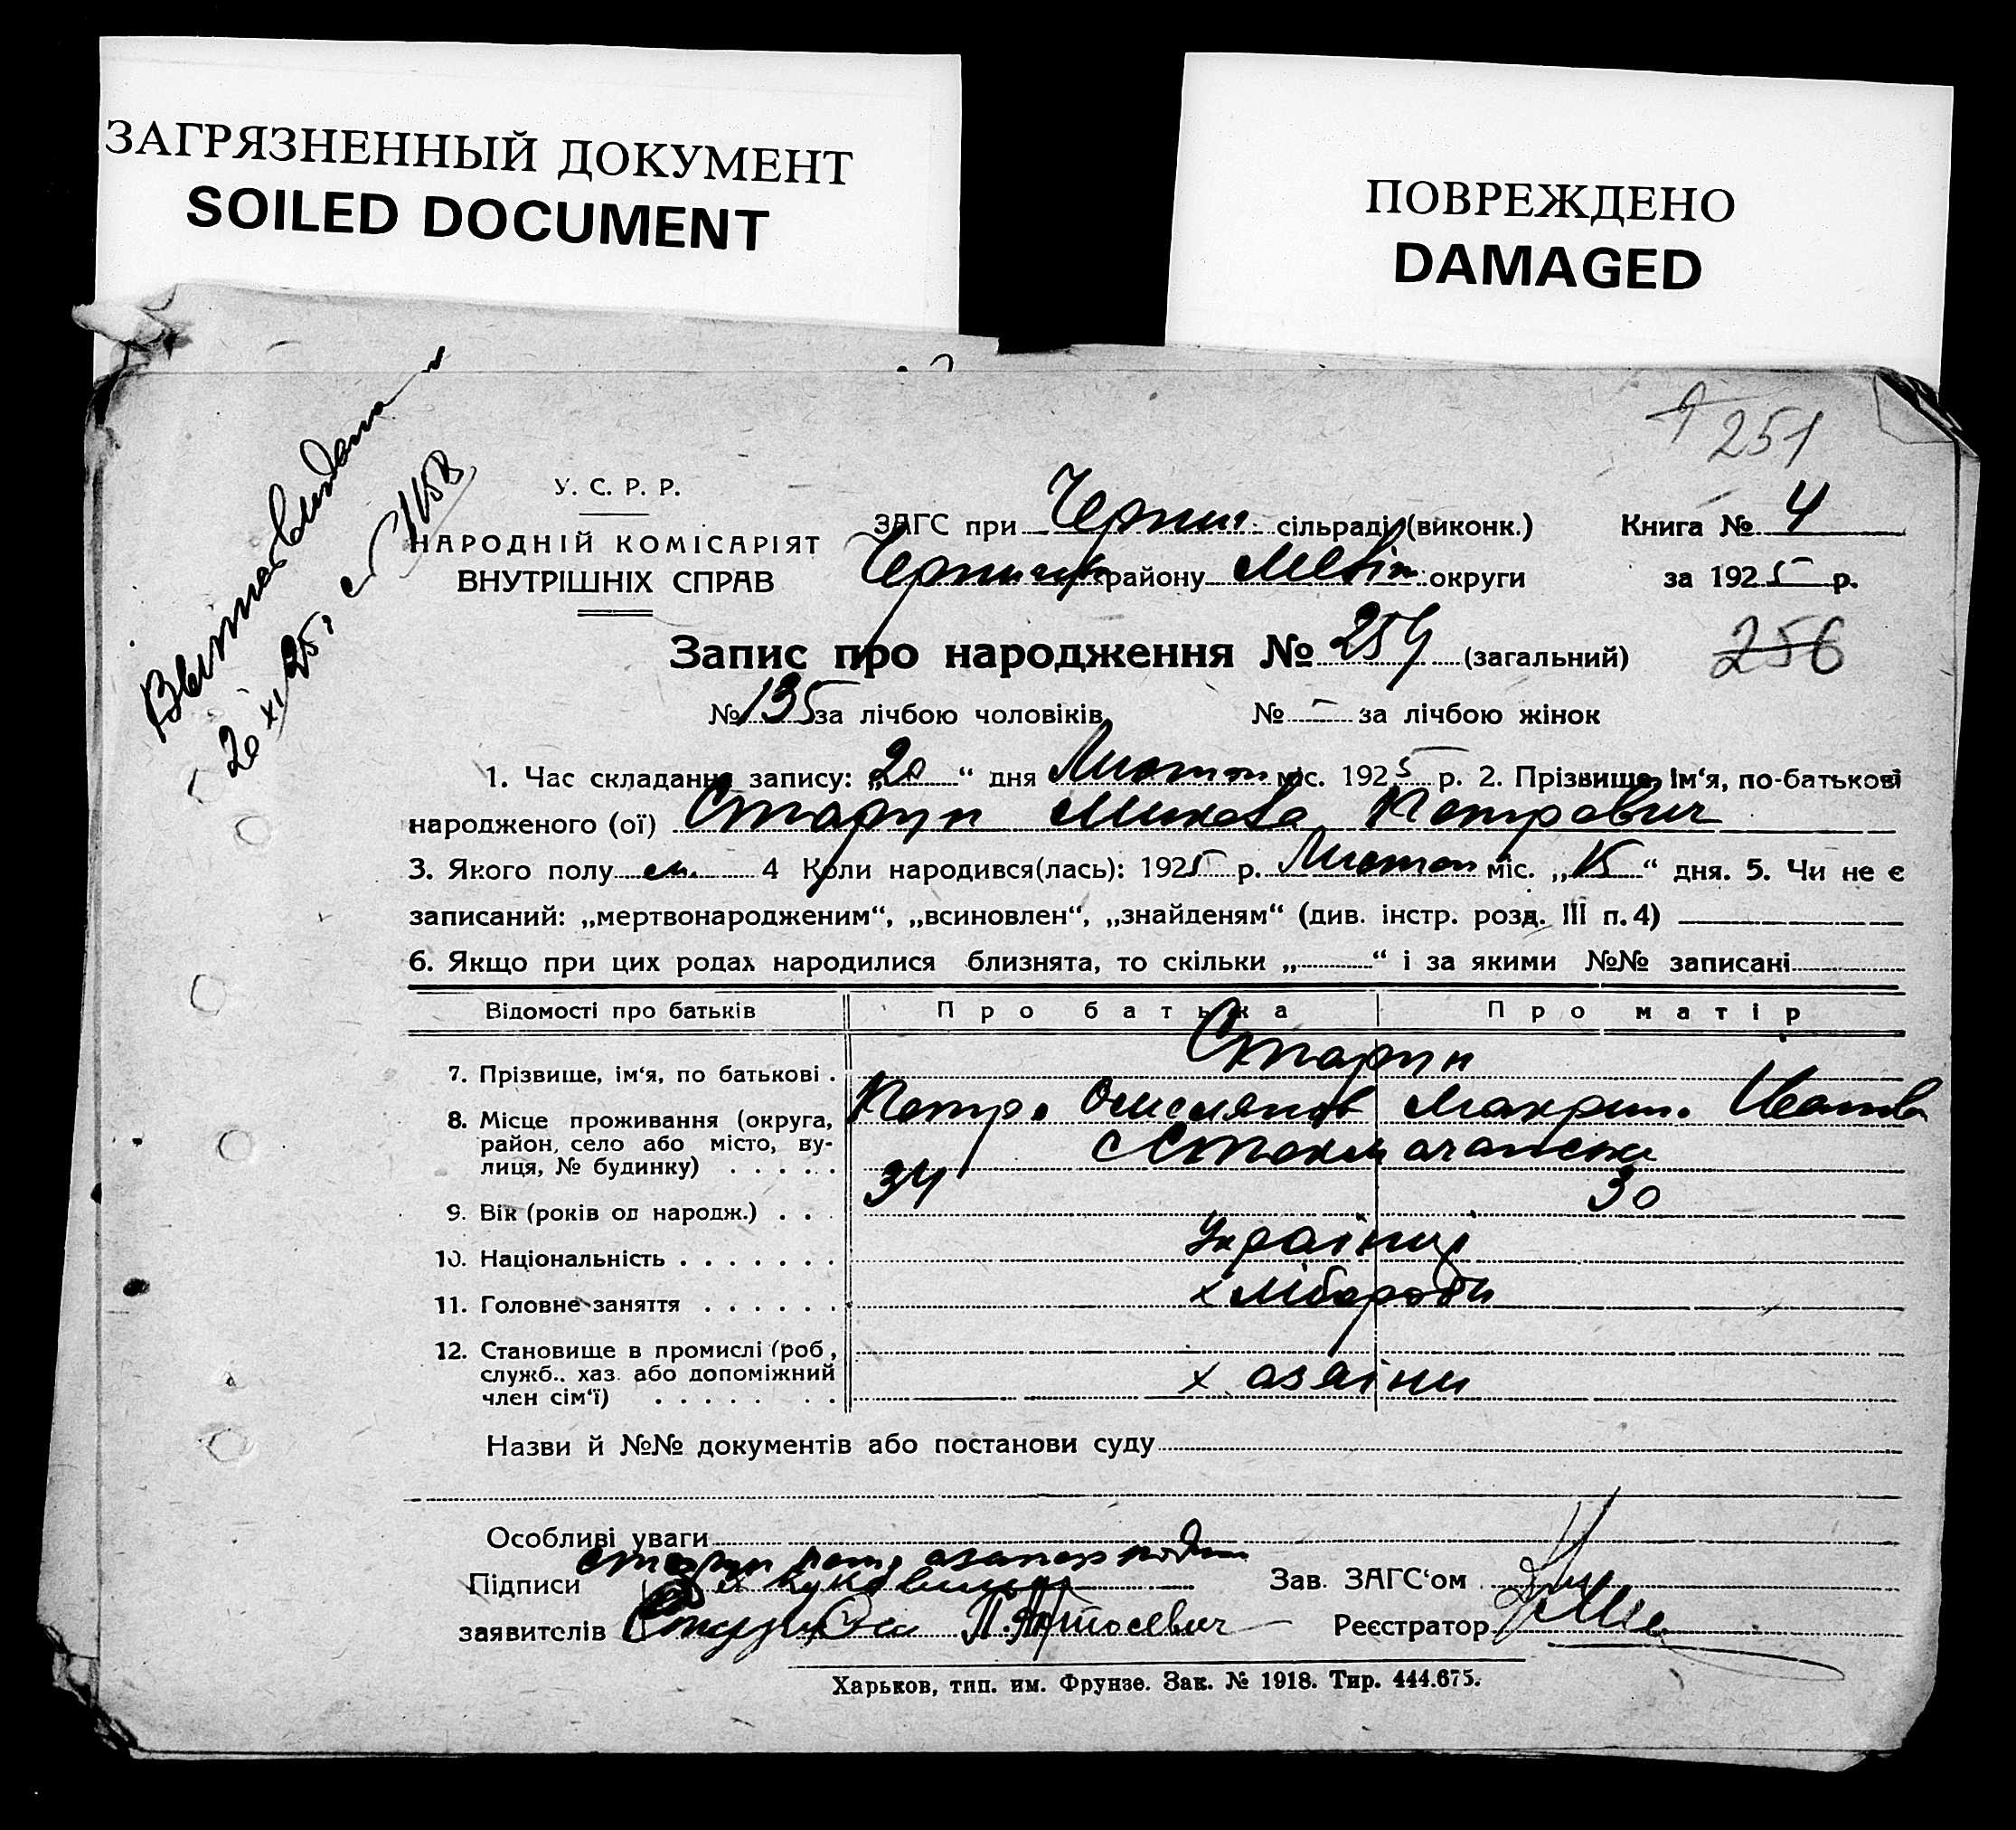 ЗАГРЯЗНЕННЫЙ ДОКУМЕНТ
SOILED DOCUMENT
ПОВРЕЖДЕНО
DAMAGED
251
20 XI 25
У. С. Р. Р.
НАРОДНІЙ КОМІСАРІЯТ
ВНУТРІШНІХ СПРАВ
ЗАГС при сільраді (виконк.) Книга № 4
району округи за 1925 р.
Запис про народження № 254 (загальний) 256
№ 135 за лічбою чоловіків № – за лічбою жінок
1. Час складання запису: „20“ дня Листоп міс. 1925 р. 2. Прізвище, ім‘я, по-батькові
народженого (ої) Старун Микола Петрович
3. Якого полу м. 4 Коли народився(лась): 1925 р. Листоп міс. „15“ дня. 5. Чи не є
записаний: „мертвонародженим“, „всиновлен“, „знайденям“ (див. інстр. розд. III п. 4)
6. Якщо при цих родах народилися близнята, то скільки „ “ і за якими №№ записані
Відомості про батьків Про батька Про матір
Старун
7. Прізвище, ім‘я, по батькові .
Петр. Макрин. Иванов
8. Місце проживання (округа,
район, село або місто, ву-
лиця, № будинку) . . . . .
34 30
9. Вік (років од народж.) . . .
Українці
10. Національність . . . . . . .
хлібороби
11. Головне заняття . . . . . .
12. Становище в промислі (роб,
служб.. хаз. або допоміжний
член сім‘ї) . . . . . . .
хазаіни
Назви й №№ документів або постанови суду
Особливі уваги
Підписи Зав. ЗАГС‘ом
заявителів Реєстратор
Харьков, тип. им. Фрунзе. Зак. № 1918. Тир. 444.675.